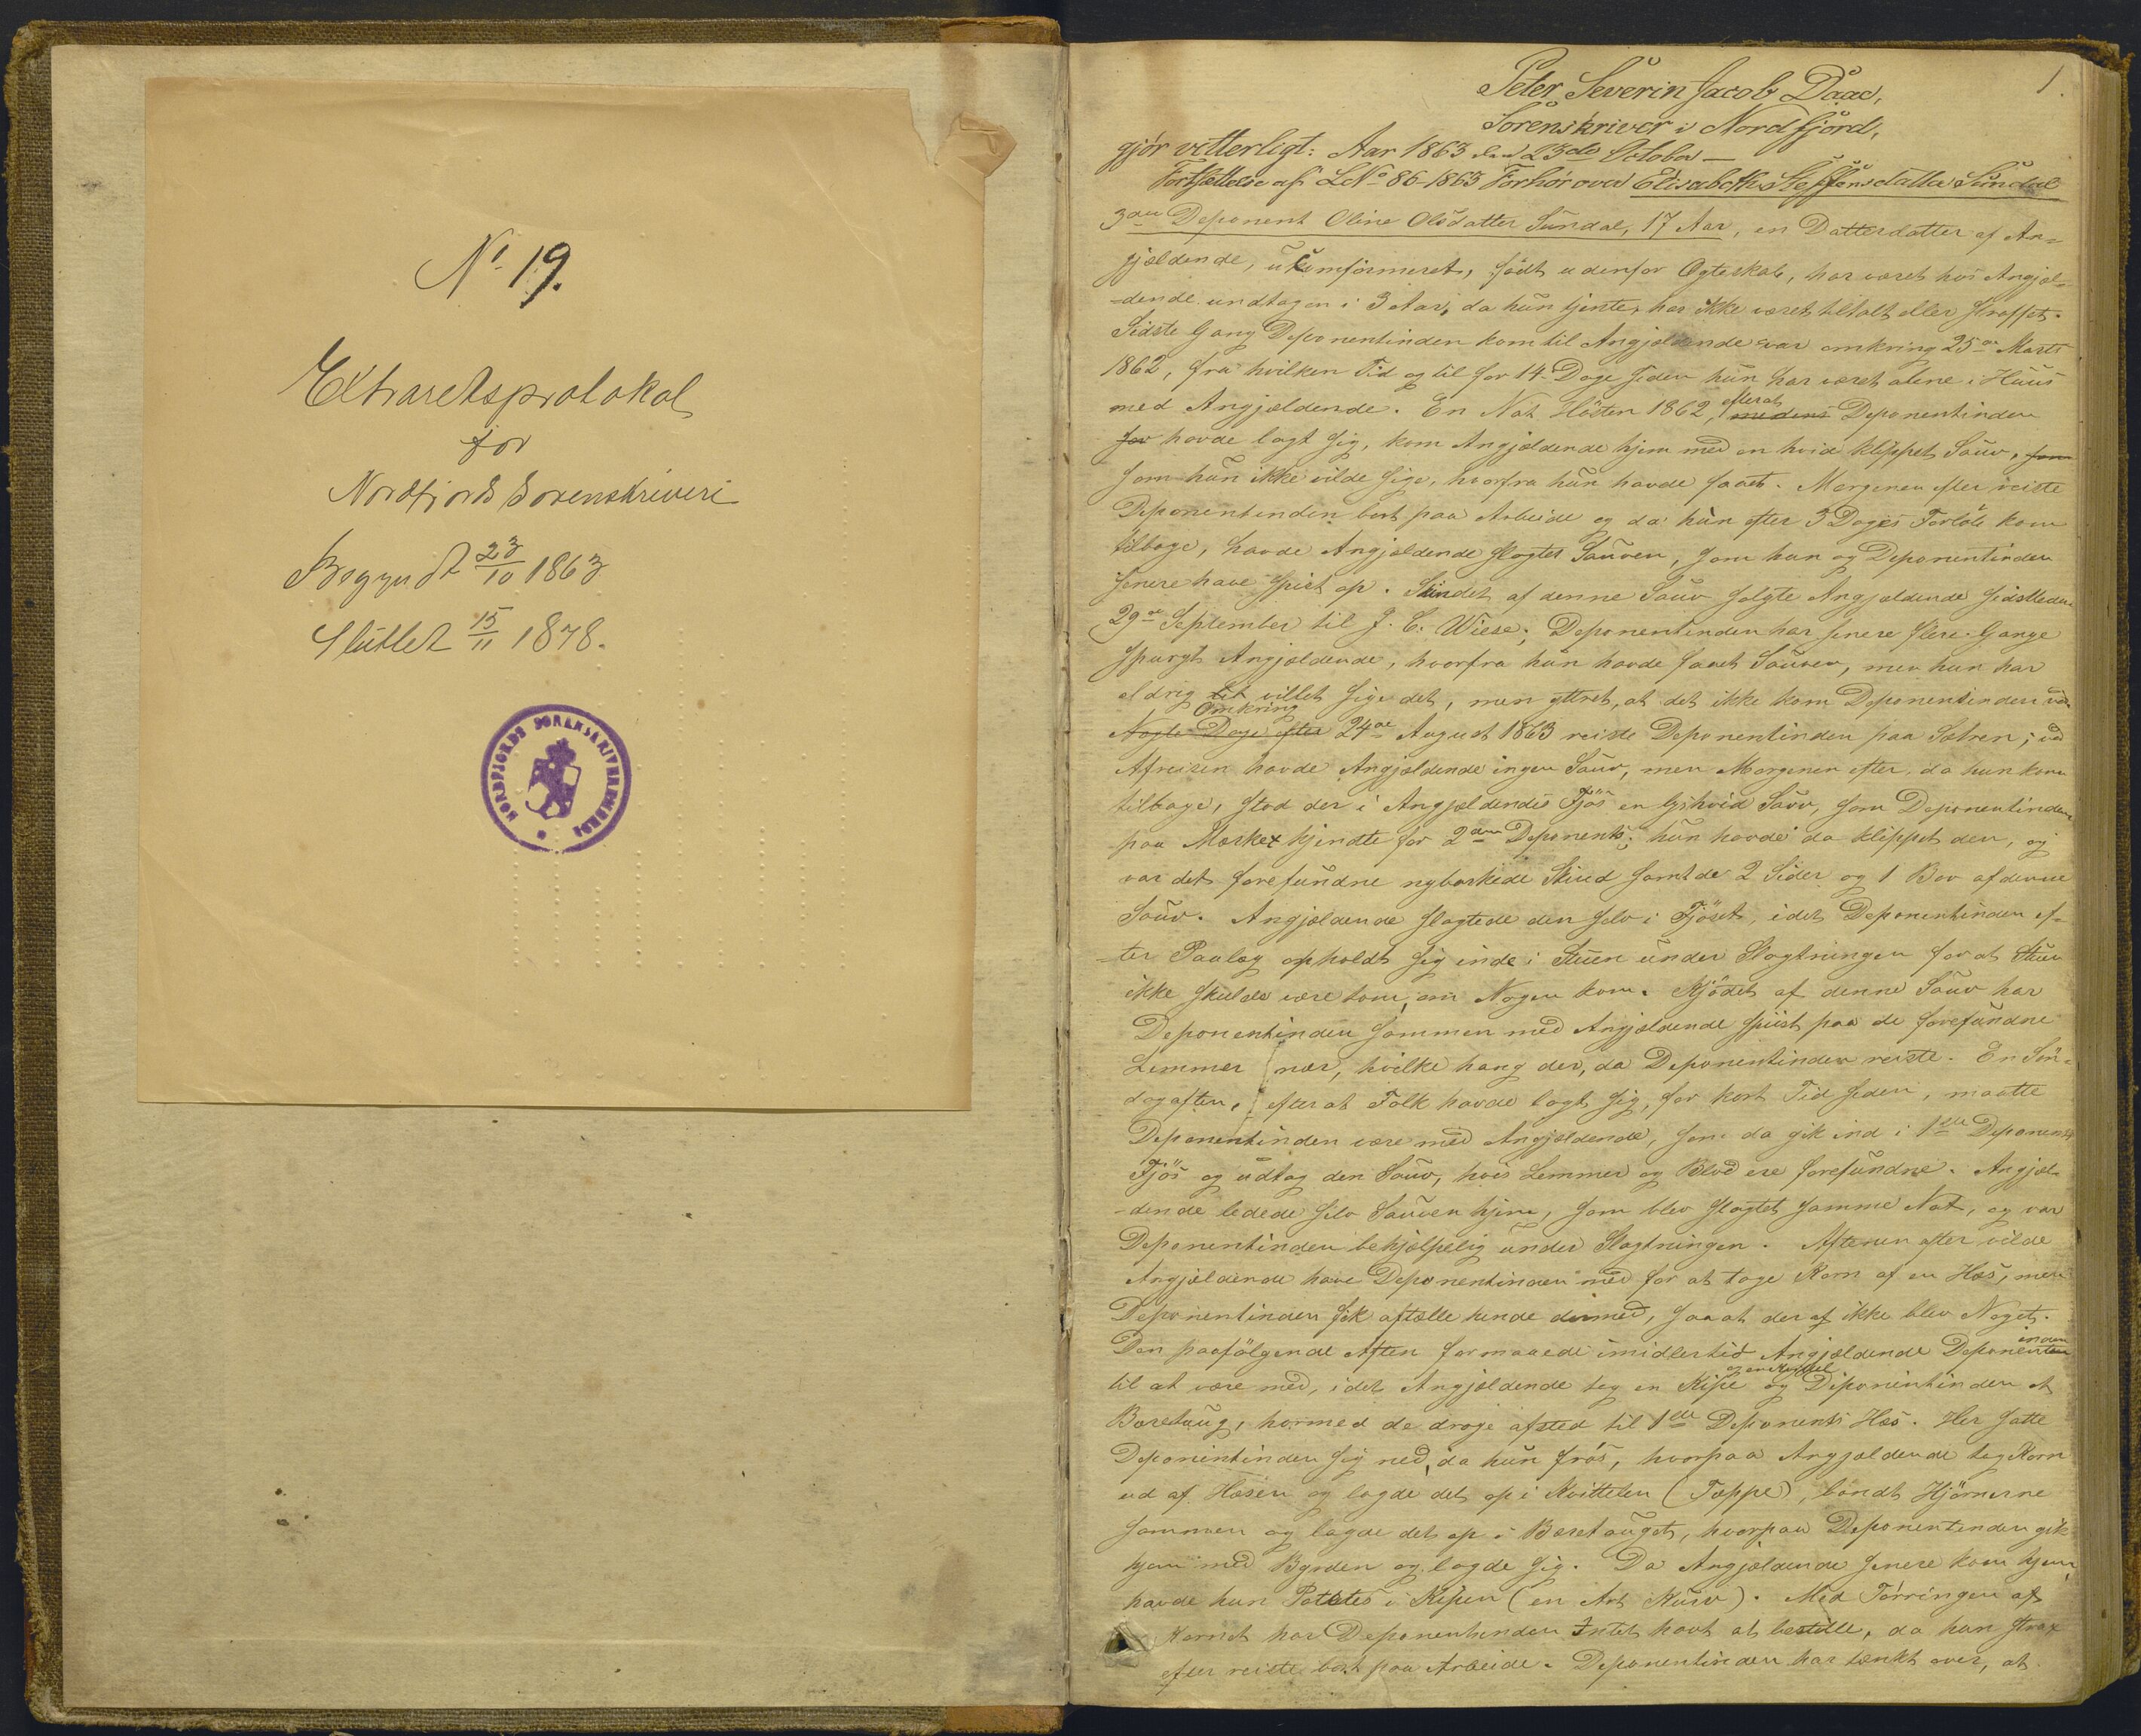 No. 19.
Extraretsprotokol
for
Nordfjords Sorenskriveri
Begyndt 23/10 1863
Sluttet 15/11 1878.
NORDFJORDS SORENSKRIVEREMBEDE
1.
Peter Severin Jacob Daae,
Sorenskriver i Nordfjord,
gjör vitterligt: Aar 1863 den 23de October —
Fortsættelse af LNo 86-1863 Forhör over Elisabeth Steffensdatter Sundal
3die Deponent Oline Olsdatter Sundal, 17 Aar, en Datterdatter af An-
gjældende, ukonfirmeret, födt udenfor Ægteskab, har været hos Angjæl-
-dende undtagen i 3 Aar, da hun tjente, har ikke været tiltalt eller straffet.
Sidste Gang Deponentinden kom til Angjældende var omkring 25de Marts
1862, fra hvilken Tid og til for 14 Dage siden hun har været alene i Huus
med Angjældende. En Nat Hösten 1862, efterat medens Deponentinden
for havde lagt sig, kom Angjældende hjem med en hvid klippet Sauv, som
som hun ikke vilde sige, hvorfra hun havde faaet. Morgenen efter reiste
Deponentinden bort paa Arbeide og da hun efter 3 Dages Forlöb kom
tilbage, havde Angjældende slagtet Sauven, som hun og Deponentinden
senere have spist op. Skindet af denne Sauv solgte Angjældende sidstleden
29de September til J. C. Wiese; Deponentinden har senere flere Gange
spurgt Angjældende, hvorfra hun havde faaet Sauven, men hun har
aldrig villet sige det, men yttret, at det ikke kom Deponentinden ved
Omkring
Nogle Dage efter 24de August 1863 reiste Deponentinden paa Sætren; ved
Afreisen havde Angjældende ingen Sauv, men Morgenen efter, da hun kom
tilbage, stod der i Angjældendes Fjös en lyshvid Sauv, som Deponentinden
paa Mærket kjendte for 2den Deponents; hun havde da klippet den, og
var det forefundne nybarkede Skind samt de 2 Sider og 1 Bov af denne
Sauv. Angjældende slagtede den selv i Fjöset, idet Deponentinden ef-
-ter Paalæg opholdt sig inde i Stuen under Slagtningen for at Stuen
ikke skulde være tom, om Nogen kom. Kjödet af denne Sauv har
Deponentinden sammen med Angjældende spiist paa de forefundne
Lemmer nær, hvilke hang der, da Deponentinden reiste. En Sön-
dagaften, efterat Folk havde lagt sig, for kort Tid siden, maatte
Deponentinden være med Angjældende, som da gik ind i 1ste Deponents
Fjös og udtog den Sauv, hvis Lemmer og Blod ere forefundne. Angjæl-
-dende ledede selv Sauven hjem, som blev slagtet samme Nat, og var
Deponentinden behjælpelig under Slagtningen. Aftenen efter vilde
Angjældende have Deponentinden med for at tage Korn af en Hæs, men
Deponentinden fik aftalle hende dermed, saa at der af ikke blev Noget.
Den paafölgende Aften formaaede imidlertid Angjældende Deponentinden
til at være med, idet Angjældende tog en Kipe og en Kvittel og Deponentinden et
Boretaug, hvormed de droge afsted til 1ste Deponents Hæs. Her satte
Deponentinden sig ned, da hun frös, hvorpaa Angjældende tog Korn
ud af Hæsen og lagde det op i Kvittelen (Tæppe), bandt Hjörnerne
sammen og lagde det op i Bæretauget, hvorpaa Deponentinden gik
hjem med Byrden og lagde sig. Da Angjældende senere kom hjem,
havde hun Potetes i Kipen (en Art Kurv). Med Törringen af
Kornet har Deponentinden Intet havt at bestille, da hun strax
efter reiste bort paa Arbeide. Deponentinden har tænkt over, at